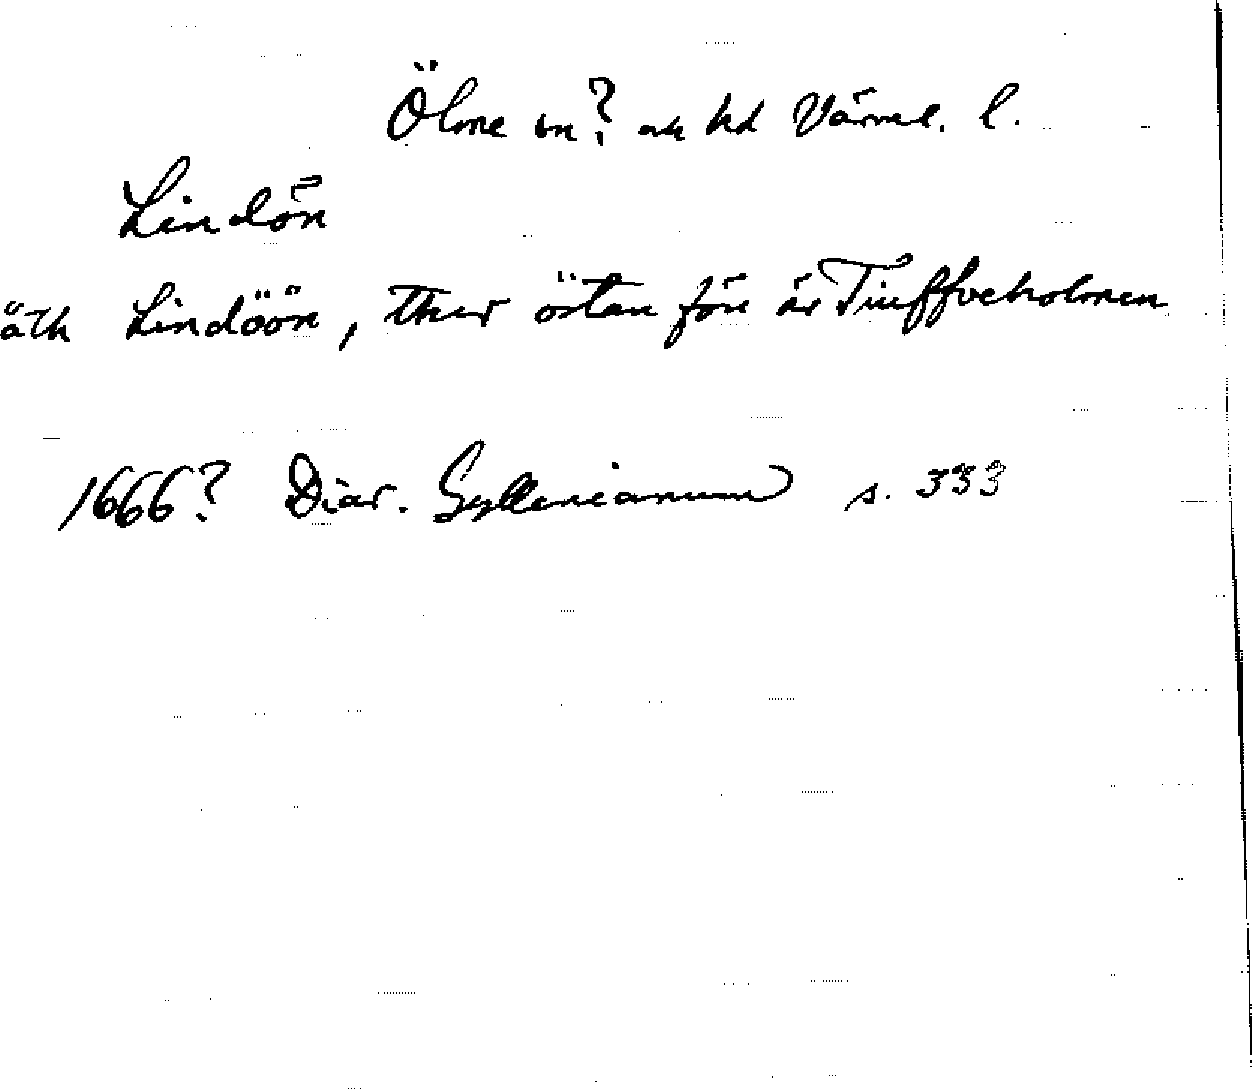 Ölme sn? och hd Värml. l.
Lindön
åth Lindöön, ther östan före är Tiuffveholmen
1666? Diar. Gyllenianum s. 333